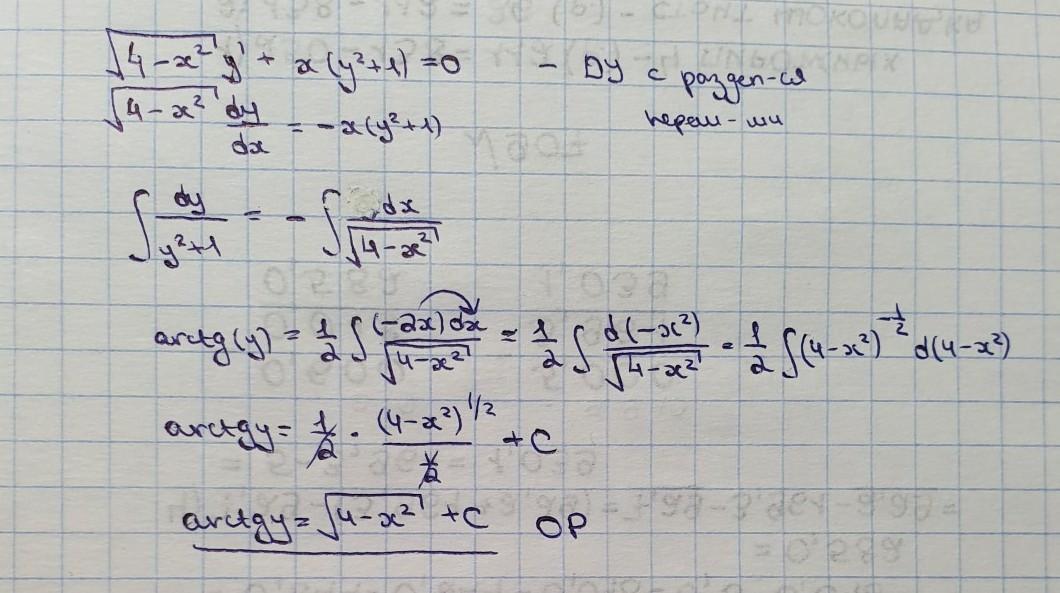 √(4-x²) y' + x(y²+1) = 0 - ДУ с раздел-ся
√(4-x²) dy/dx = -x(y²+1) перем-ми
∫ dy/(y²+1) = - ∫ dx/√(4-x²)
arctg(y) = 1/2 ∫ (-2x)dx/√(4-x²) = 1/2 ∫ d(-x²)/√(4-x²) = 1/2 ∫(4-x²)^(-1/2) d(4-x²)
arctgy = 1/2 · (4-x²)^(1/2)/(1/2) + C
arctgy = √(4-x²) + C ОР